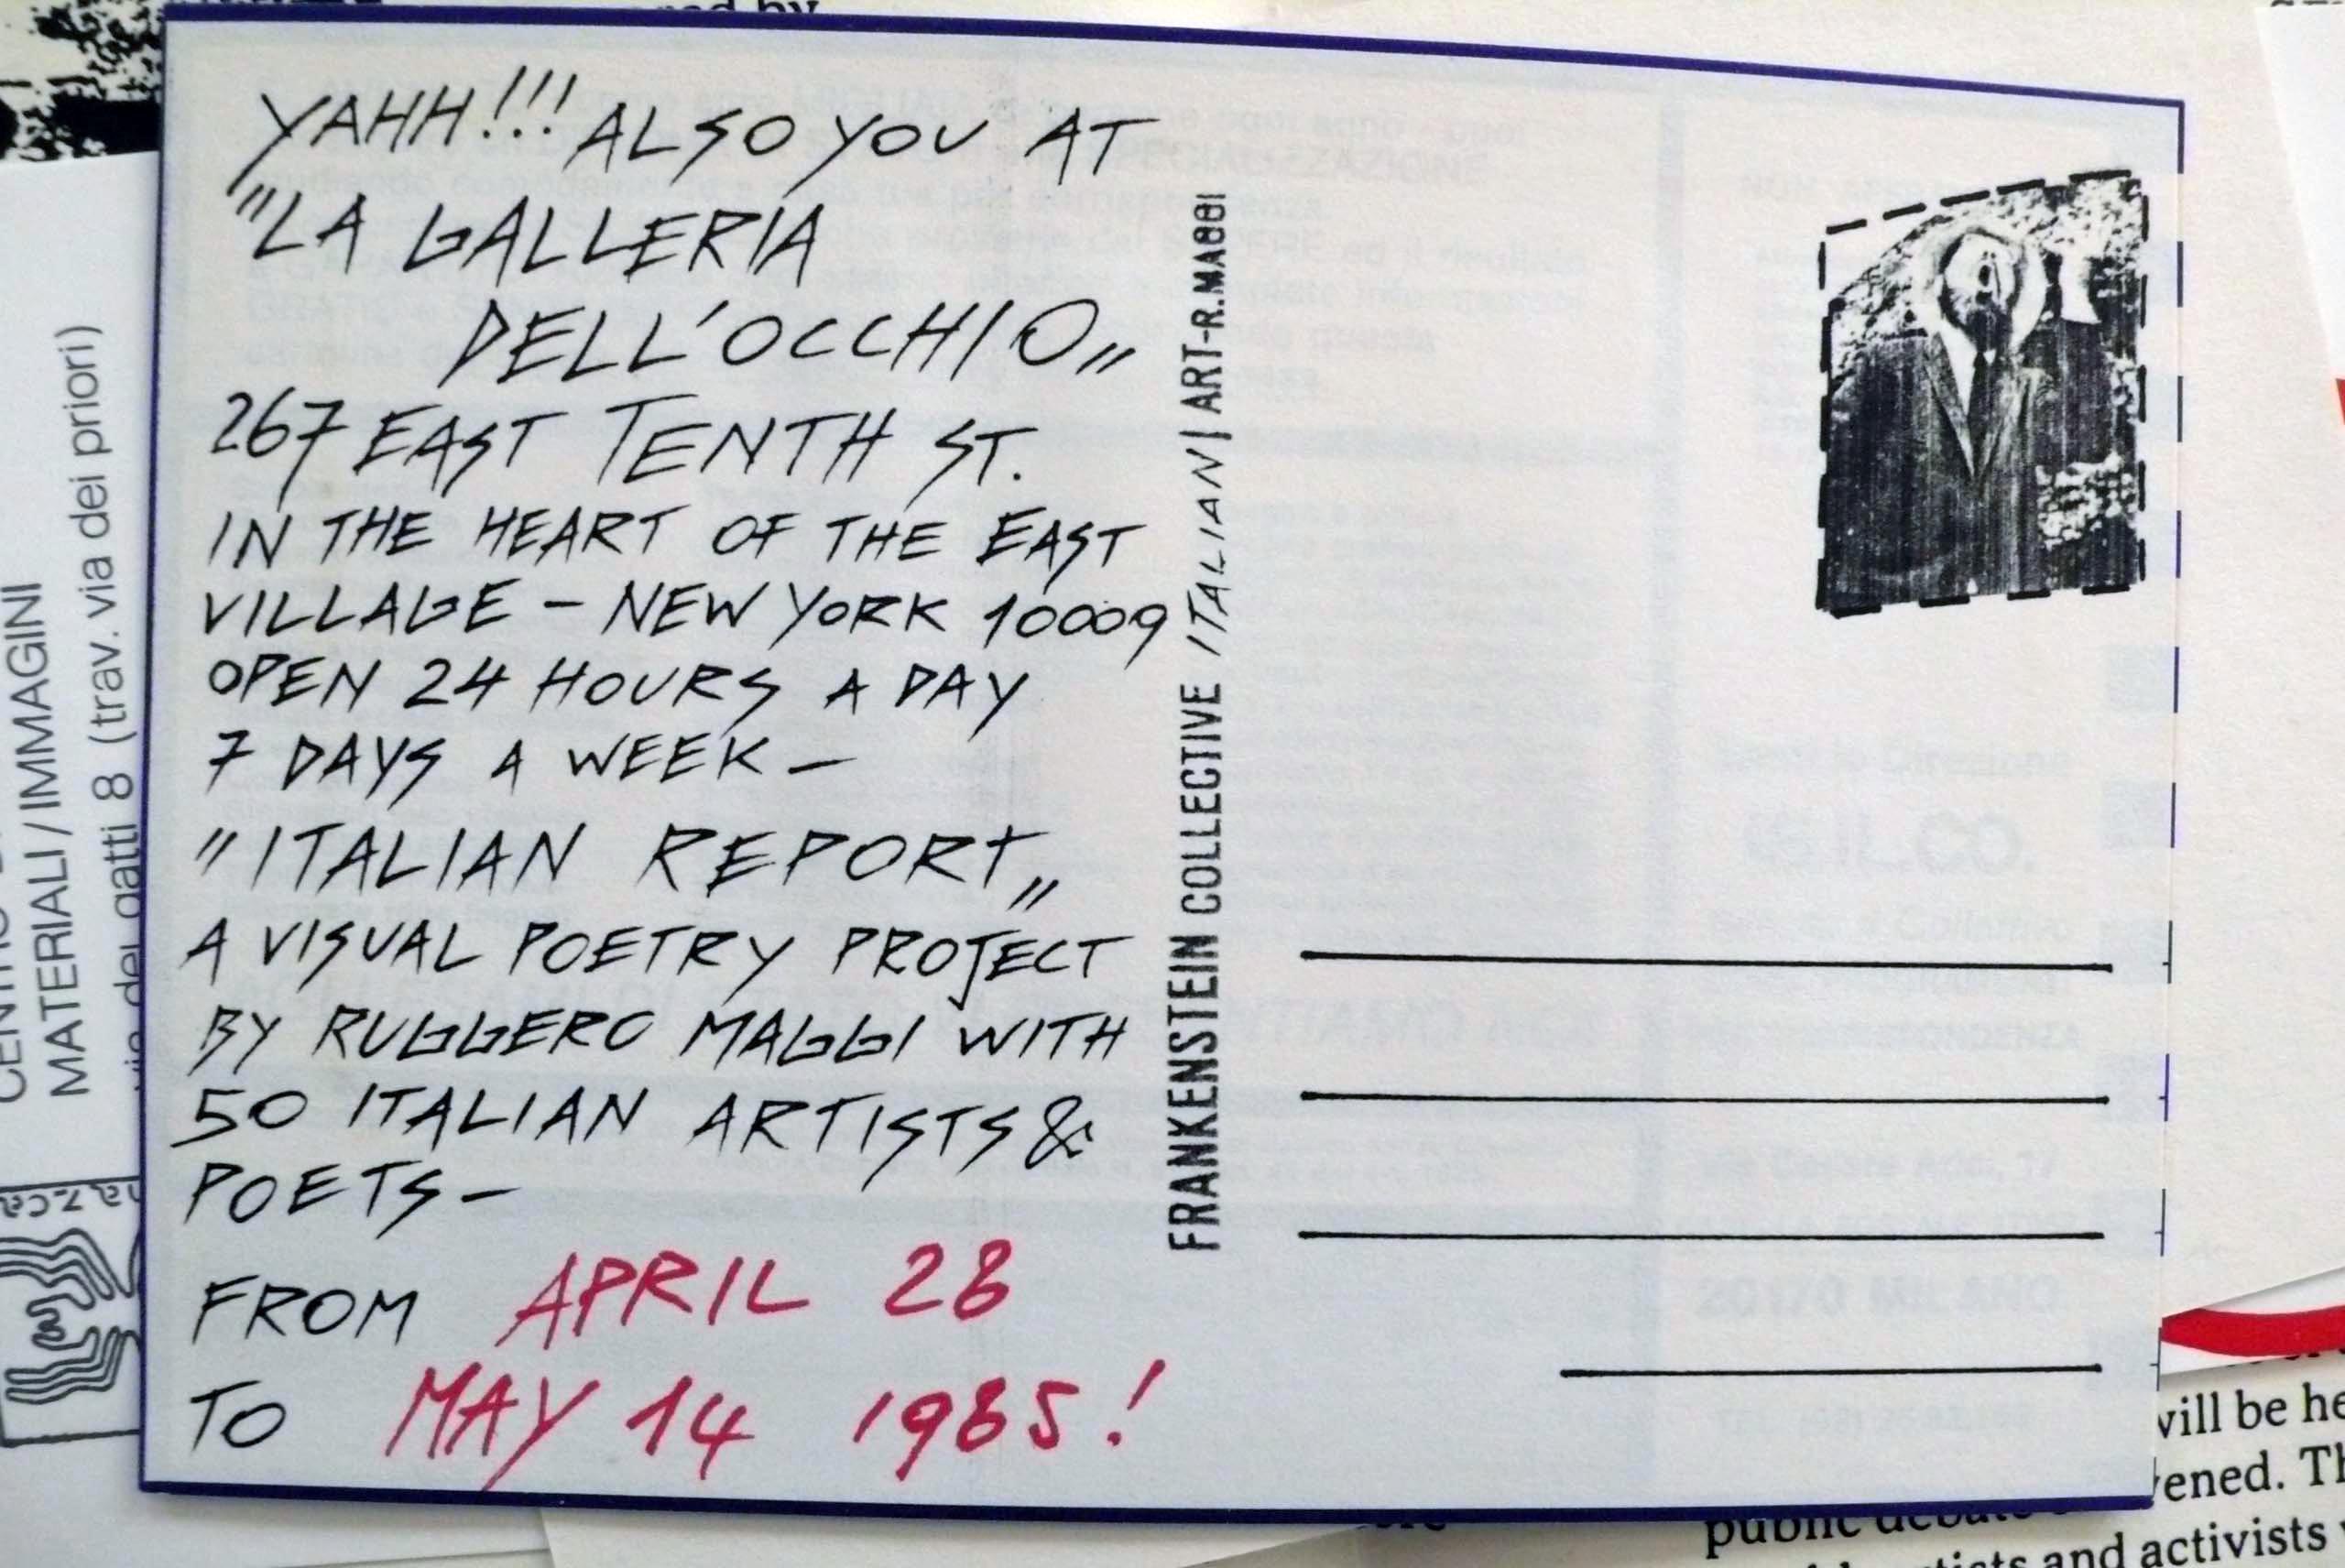 YAHH!!! ALSO YOU AT
"LA GALLERIA
DELL'OCCHIO"
267 EAST TENTH ST.
IN THE HEART OF THE EAST
VILLAGE – NEW YORK 10009
OPEN 24 HOURS A DAY
7 DAYS A WEEK –
"ITALIAN REPORT"
A VISUAL POETRY PROJECT
BY RUGGERO MAGGI WITH
50 ITALIAN ARTISTS &
POETS –
FROM APRIL 28
TO MAY 14 1985!
FRANKENSTEIN COLLECTIVE ITALIAN | ART-R.MAGGI
MATERIALI / IMMAGINI
via dei gatti 8 (trav. via dei priori)
20170 MILANO
will be
public
and activists